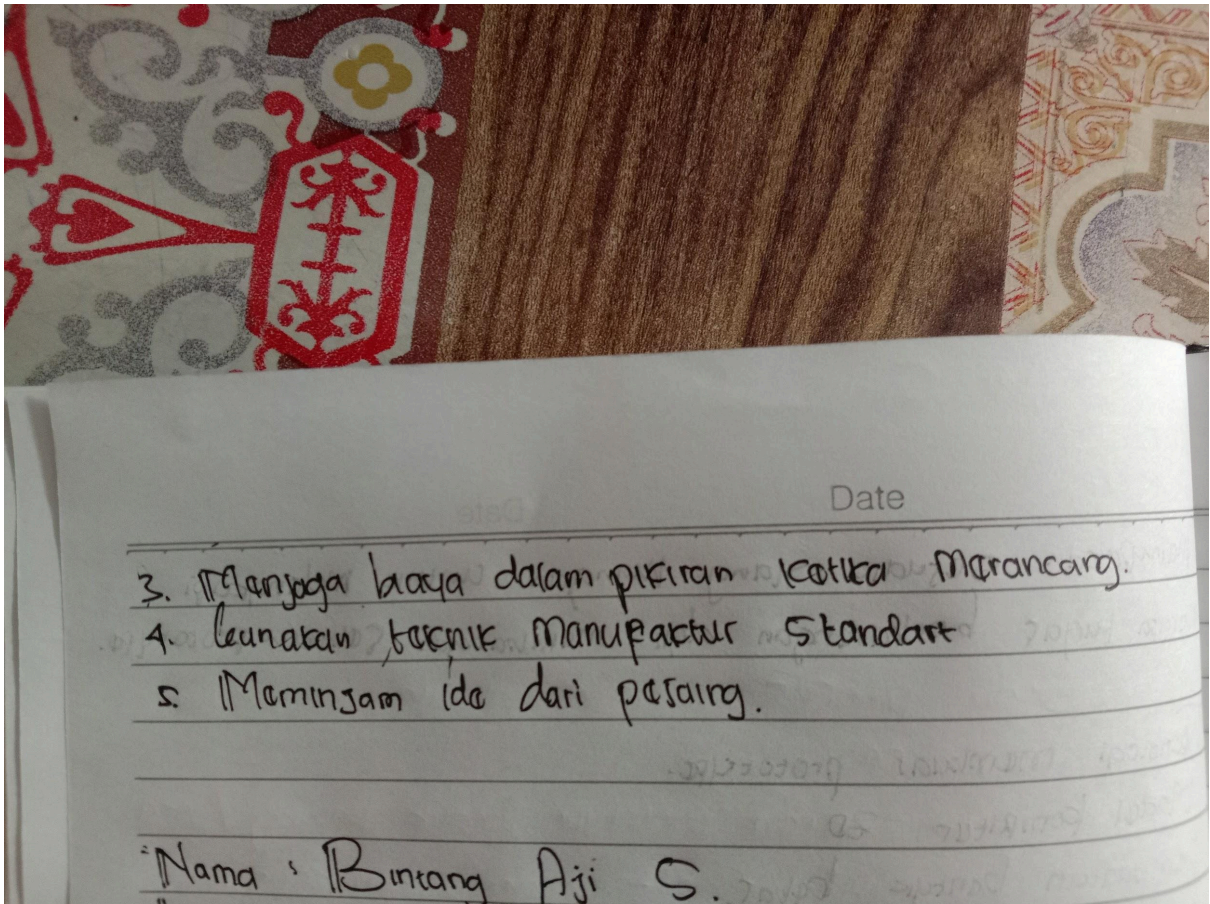 Date
3. Menjaga biaya dalam pikiran ketika Merancang.
4. Gunakan teknik Manufaktur Standart
5. Meminjam ide dari pesaing.
Nama : Bintang Aji S.